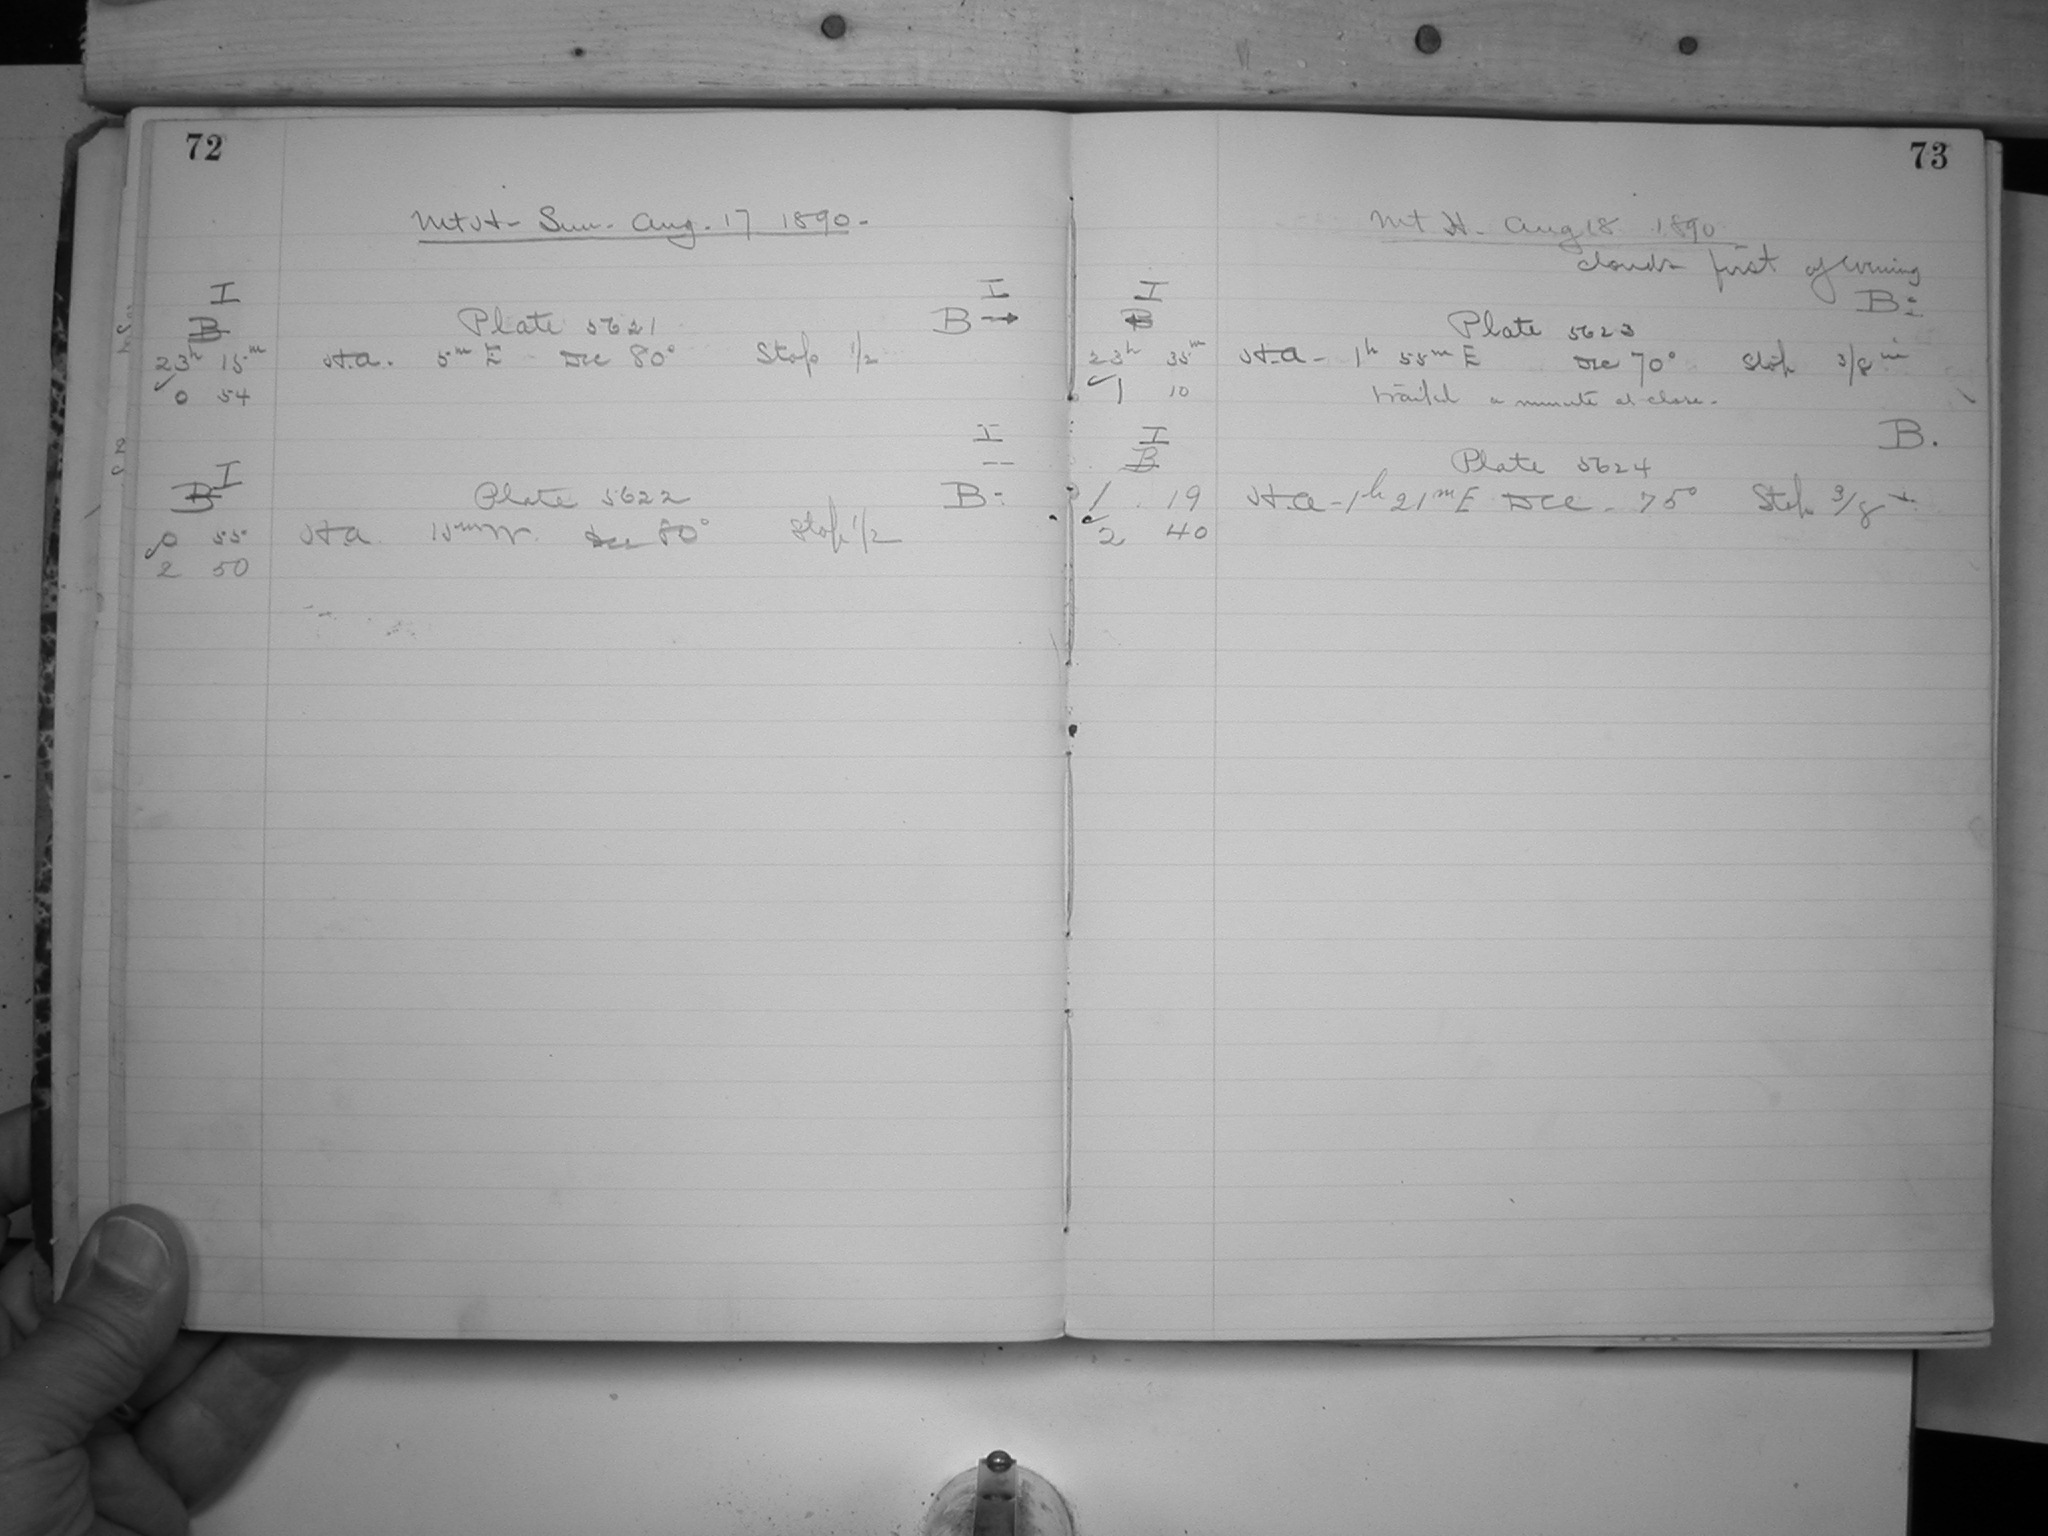 72
Mt H- Sun. Aug. 17 1890-
I I
B Plate 5621 B
23h 15m H.a. 5m E Dec 80° Stop 1/2
0 54
I
I
B Plate 5622 B
0 55 H a 15m W. Dec 80° Stop 1/2
2 50
73
Mt H. Aug 18 1890
clouds first of evening
I B
B Plate 5623
23h 35m H.a- 1h 55m E Dec 70° Stop 3/8 in
1 10 trailed a minute at close-
I B.
B Plate 5624
1 19 H.a-1h 21m E Dec. 75° Stop 3/8
2 40